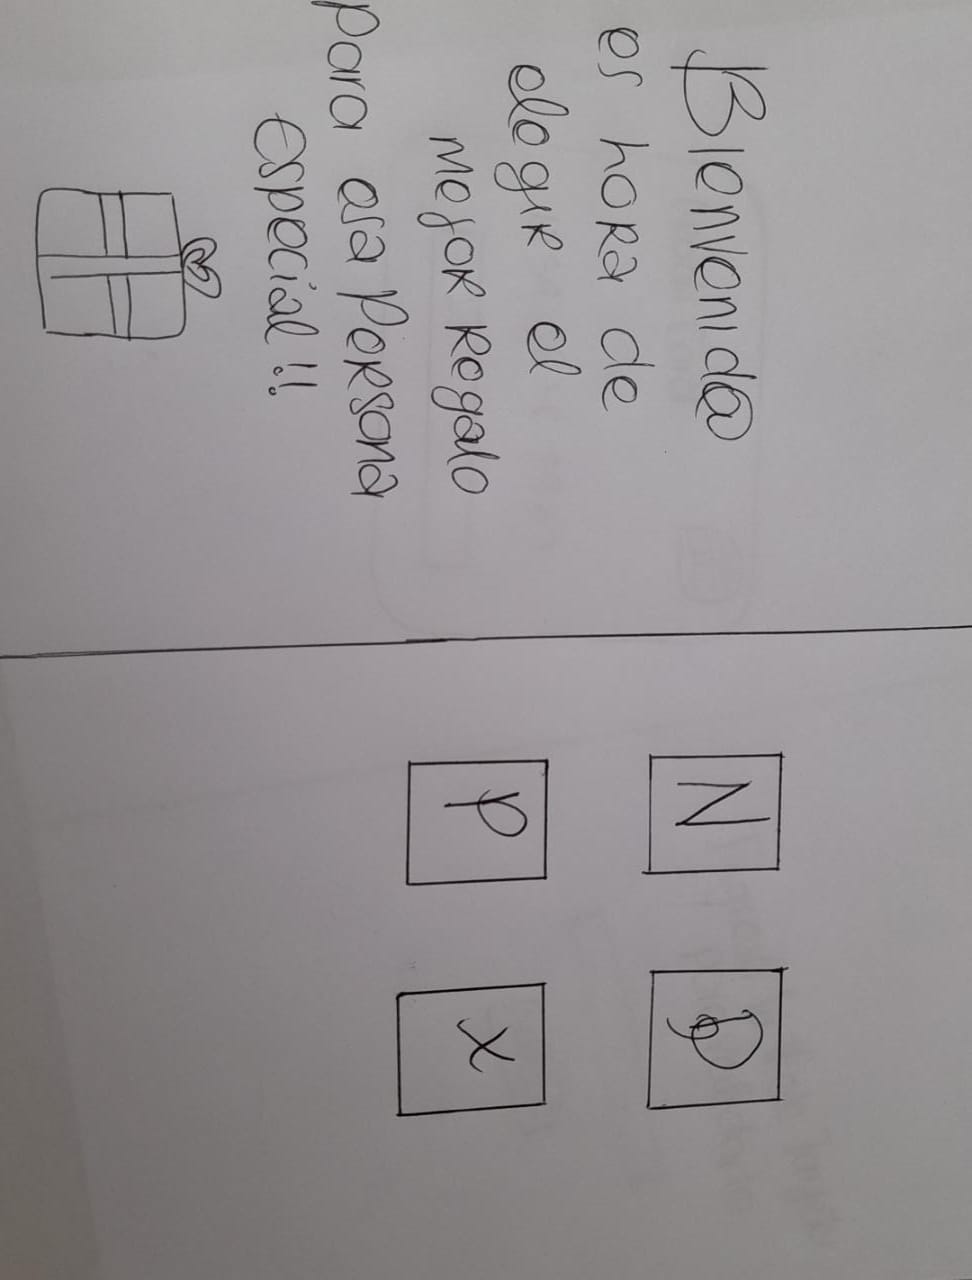 Bienvenid@
es hora de
elegir el
mejor regalo
para esa persona
especial!!
N D
P X